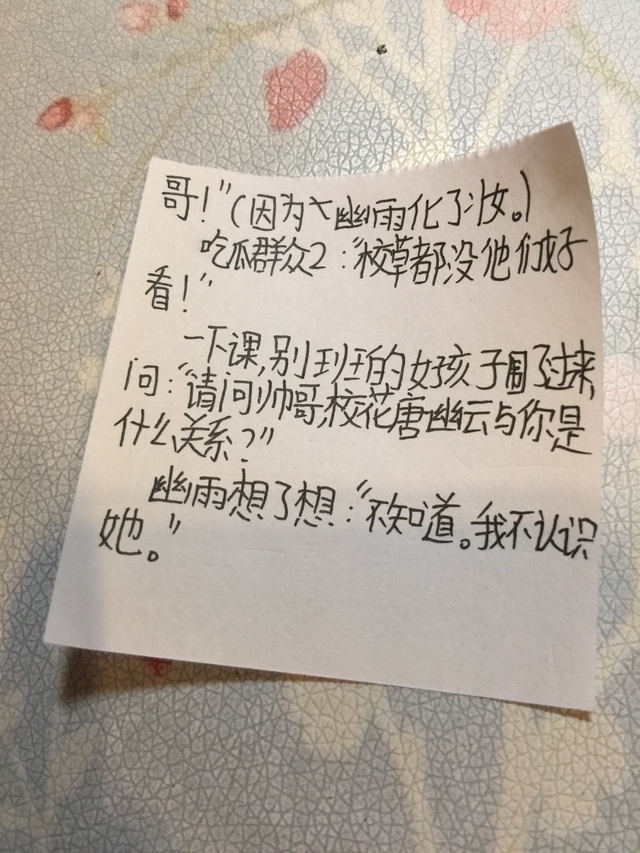 哥！”（因为幽雨化了妆。）
吃瓜群众2：“校草都没他们好
看！”
一下课，别班的女孩子围了过来，
问：“请问帅哥，校花唐幽云与你是
什么关系？”
幽雨想了想：“不知道。我不认识
她。”